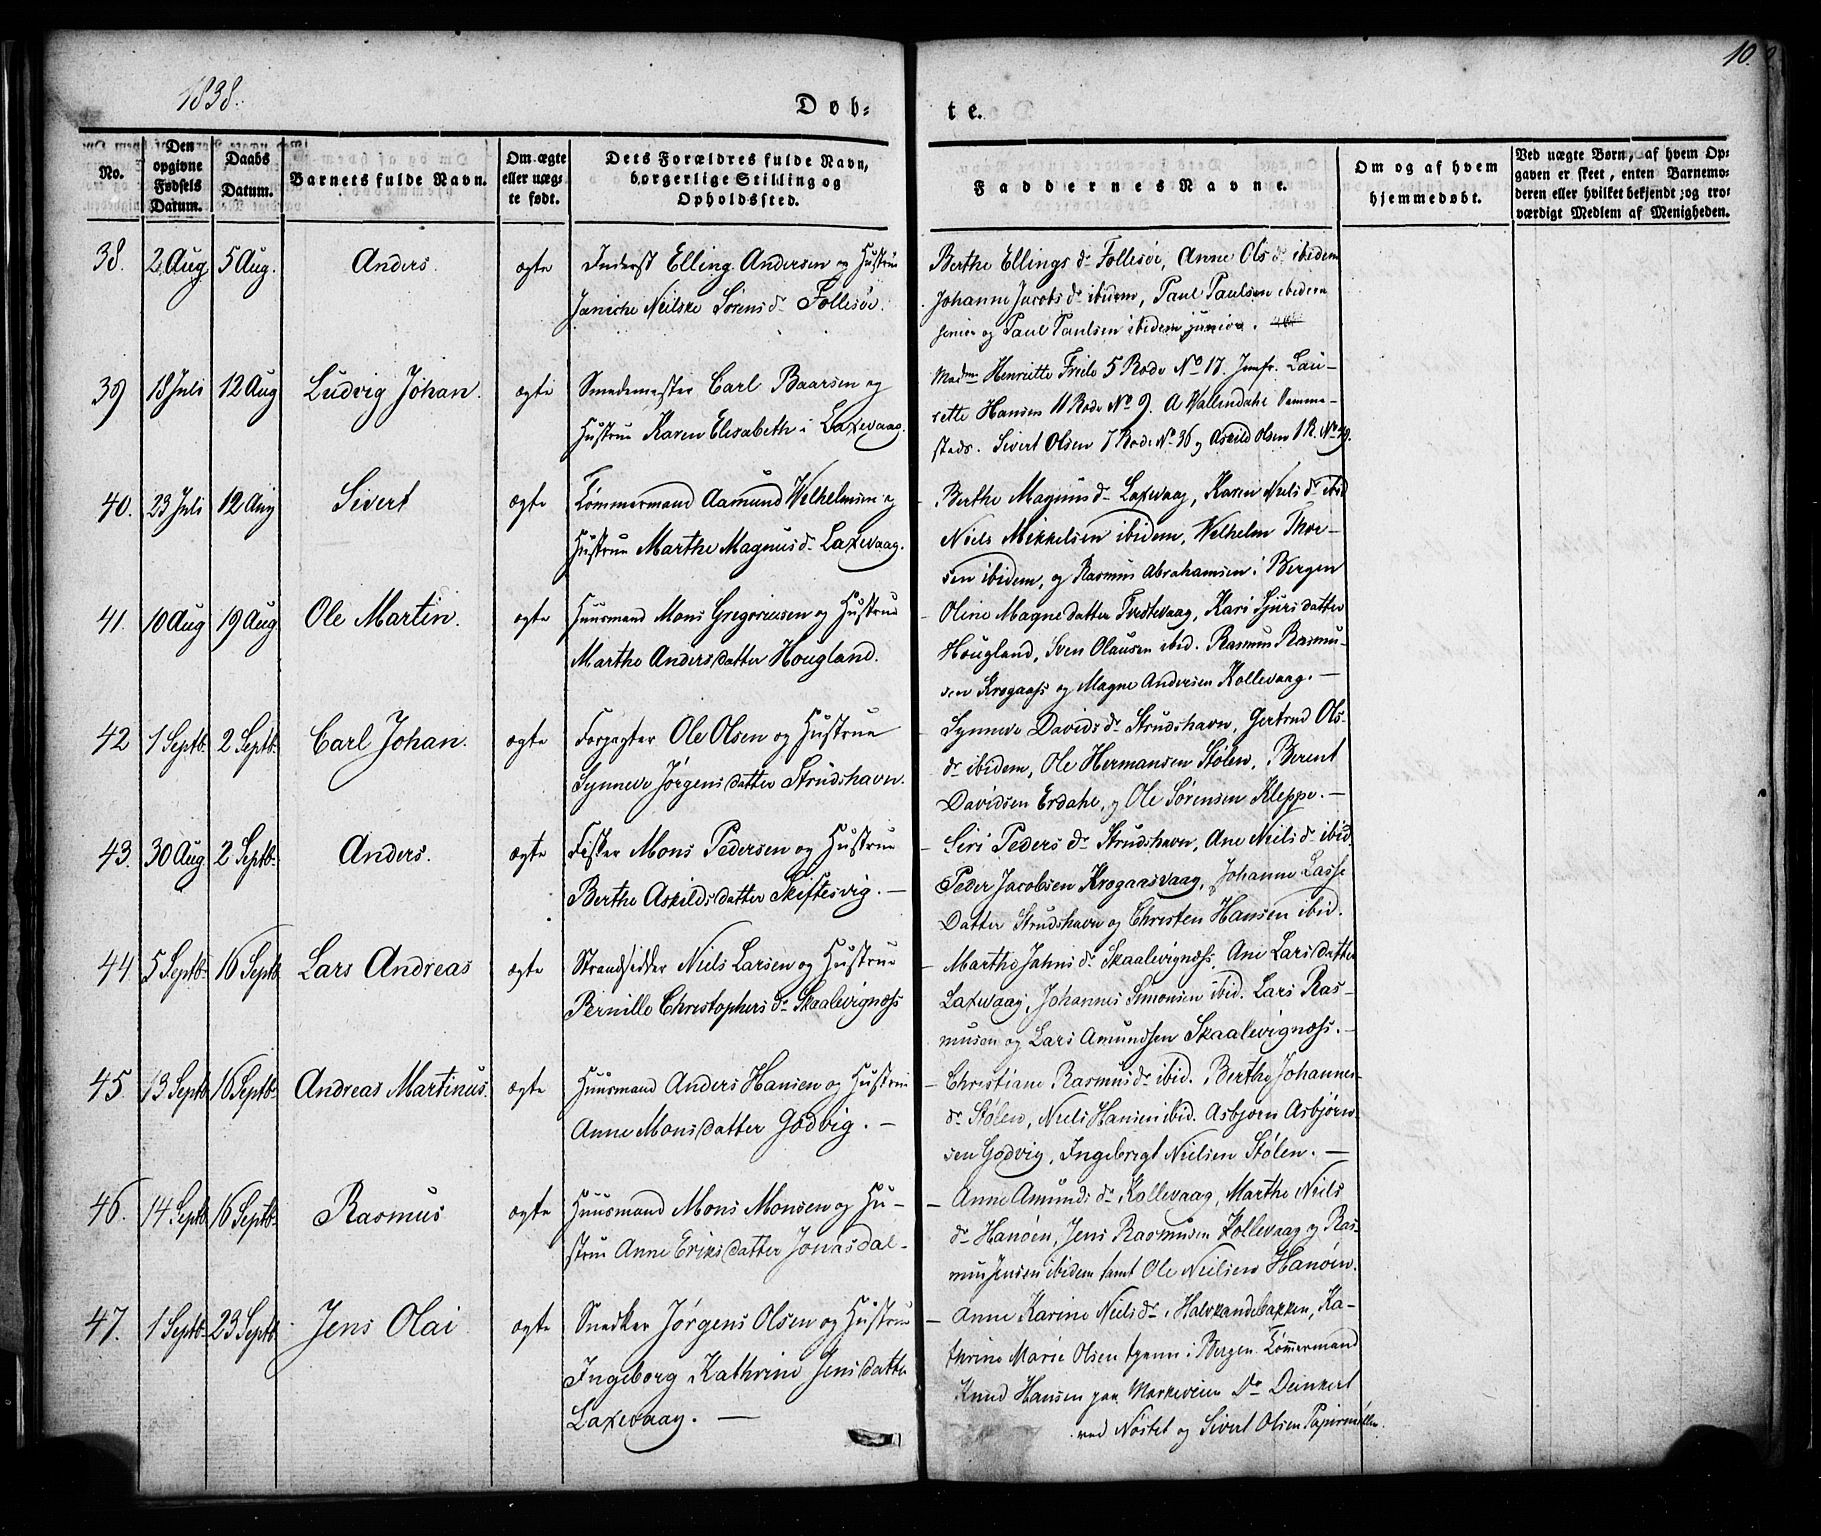 1838.
Døb-
te.
10.
No.
Den opgivne Fødsels Datum.
Daabs Datum.
Barnets fulde Navn.
Om ægte eller uægte født.
Dets Forældres fulde Navn, borgerlige Stilling og Opholdssted.
Faddernes Navne.
Om og af hvem hjemmedøbt.
Ved uægte Børn, af hvem Opgaven er skeet, enten Barnemoderen eller hvilket bekjendt og troværdigt Medlem af Menigheden.
38. 2 Aug 5 Aug. Anders. ægte Inderst Elling Andersen og Hustrue
Janiche Neilske Sørens dr Follesøe.
Berthe Ellings dr Follesøe, Anne Ols dr ibidem
Johanne Jacobs dr ibidem, Paul Paulsen ibidem
senior og Paul Paulsen ibidem junior.
39 18 Juli 12 Aug Ludvig Johan. ægte Smedemester Carl Baarsen og
Hustrue Karen Elisabeth i Laxevaag.
Madme Henriette Friele 5 Rode No 17. Jomfr. Lau-
rette Hansen 11 Rode No 9. A Wallendahl Damme-
stads. Sivert Olsen 7 Rode No 36 og Askild Olsen 1 R. No 29.
40. 23 Juli 12 Aug Sivert ægte Tømmermand Aamund Welhelmsen og
Hustrue Marthe Magnus dr Laxevaag.
Berthe Magnus dr Laxevaag, Karen Niels dr ibid
Niels Mikkelsen ibidem, Welhelm Thor-
sen ibidem, og Rasmus Abrahamsen i Bergen
41. 10 Aug 19 Aug Ole Martin. ægte Huusmand Mons Gregoriusen og Hustrue
Marthe Andersdatter Hougland.
Oline Magnedatter Tveitevaag, Kari Sjursdatter
Hougland, Sven Olausen ibid. Rasmus Rasmu-
sen Krogaas og Magne Andersen Kollevaag. —
42 1 Septb. 2 Septb. Carl Johan. ægte Forpagter Ole Olsen og Hustrue
Synneve Jørgensdatter Strudshavn.
Synneve Davids dr Strudshavn, Gertrud Ols-
dr ibidem, Ole Hermansen Stølen, Berent
Davidsen Erdahl, og Ole Sørensen Kleppe. —
43. 30 Aug 2 Septb. Anders. ægte Fisker Mons Pedersen og Hustrue
Berthe Askildsdatter Skiftesvig. —
Siri Peders dr Strudshavn, Ane Neils dr ibid
Peder Jacobsen Krogaasvaag, Johanne Lasse
Datter Strudshavn og Christen Hansen ibid.
44. 5 Septb. 16 Septb. Lars Andreas ægte Strandsidder Niels Larsen og Hustrue
Pernille Christophers dr Skaalevignæss
Marthe Jahns dr Skaalevignæss, Ane Larsdatter
Laxevaag, Johannes Simonsen ibid. Lars Ras-
musen og Lars Amundsen Skaalevignæss. —
45. 13 Septb 16 Septb. Andreas Martinus. ægte Huusmand Anders Hansen og Hustrue
Anne Monsdatter Godvig. —
Christiane Rasmus dr ibid. Berthe Johannes-
dr Stølen, Niels Hansen ibid. Asbjørn Asbjørn-
sen Godvig, Ingebrigt Nielsen Stølen. —
46. 14 Septb 16 Septb. Rasmus ægte Huusmand Mons Monsen og Hu-
strue Anne Eriksdatter Jonasdal.
Anne Amunds dr Kollevaag, Marthe Niels
dr Hanøen, Jens Rasmusen Kollevaag og Ras-
mus Jensen ibidem samt Ole Neilsen Hanøen.
47. 1 Septb. 23 Septb. Jens Olai ægte Snedker Jørgens Olsen og Hustrue
Ingeborg Kathrine Jensdatter
Laxevaag. —
Anne Karine Niels dr i Halvkandebakken, Ka-
thrine Marie Olsen tjenn i Bergen. Tømmermand
Knud Hansen paa Markeveien Do Deinkert
ved Nøstet og Sivert Olsen Papirmøllen.